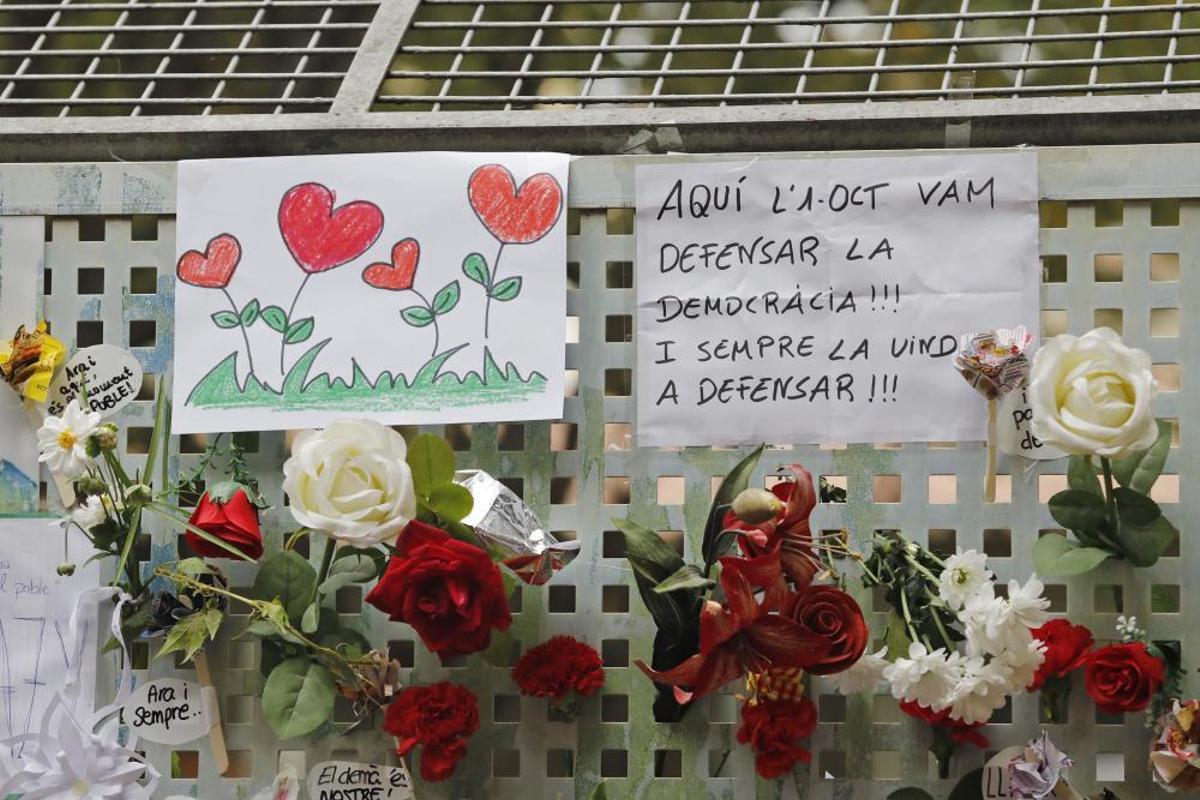 AQUÍ L'1·OCT VAM
DEFENSAR LA
DEMOCRÀCIA!!!
I SEMPRE LA VIND
A DEFENSAR!!!
Ara i
aquí
és
POBLE!
i
po
de
poble
Ara i
Sempre..
El demà és
NOSTRE!